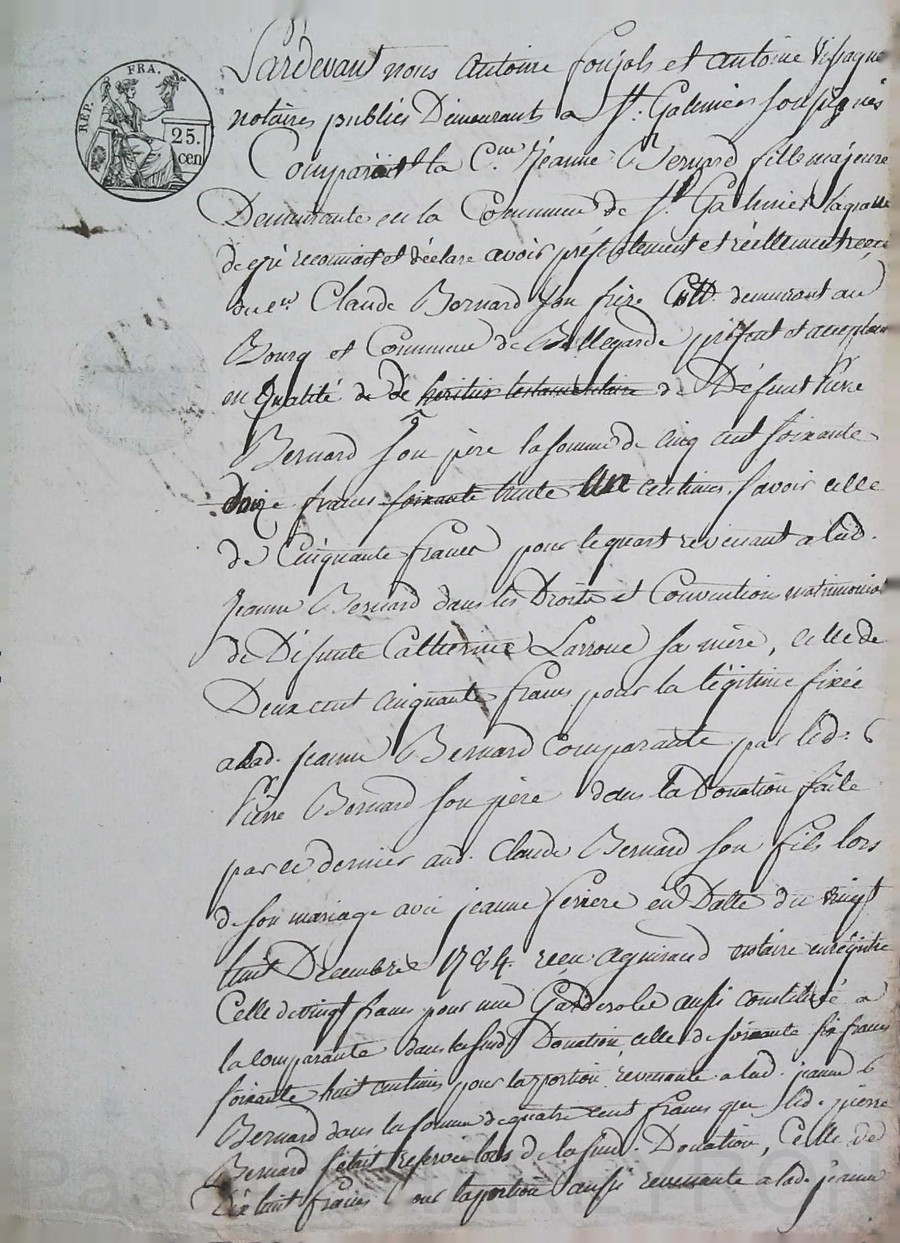 REP. FRA.
25.
cen
Pardevant nous Antoine foujols et antoine
notaires publics Demeurants a St. Galmier soussignés
Comparait la C.ne Jeanne Bernard fille majeure
Demeurante en la Commune de St. Galmier laquelle
de gré reconnait et déclare avoir présentement et réellement reçu
du c.en Claude Bernard son frère demeurant au
Bourg et Commune de Bellegarde présent et acceptant
en qualité de de heritier testamentaire de Défunt Pierre
Bernard son père la somme de cinq cent soixante
francs soixante trente un centimes, savoir celle
de Cinquante francs pour le quart revenant a lad.
Jeanne Bernard dans les Droits et Convention matrimonial
de Défunte Catherine Larroue sa mère, celle de
Deux cent cinquante francs pour la légitime fixée
a lad. Jeanne Bernard Comparante par led. 6
Pierre Bernard son père dans la Donation faite
par ce dernier aud. Claude Bernard son fils lors
de son mariage avec jeanne ferrere en Datte du vingt
huit Decembre 1784. reçu Aguiraud notaire enregistré
Celle de vingt francs pour une Garderobe aussi constitué a
la Comparante dans lasusd. Donation, celle de soixante six francs
soixante huit centimes pour la portion revenante a lad. jeanne 6
Bernard dans la somme de quatre cent francs que led. pierre
Bernard s'était reservée lors de la susd. Donation, Celle de
Dix huit francs pour la portion aussi revenante a lad. jeanne